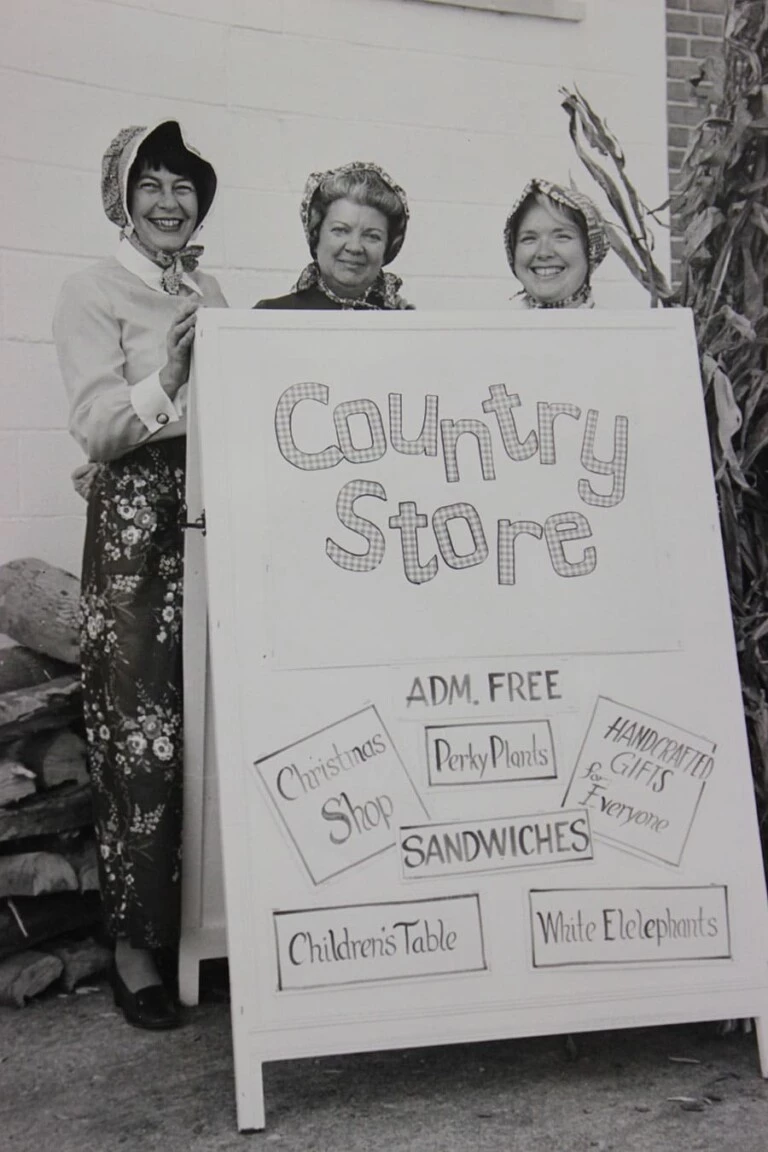 Country
Store
ADM. FREE
Christmas
Shop
Perky Plants
HANDCRAFTED
GIFTS
for
Everyone
SANDWICHES
Children's Table
White Elelephants